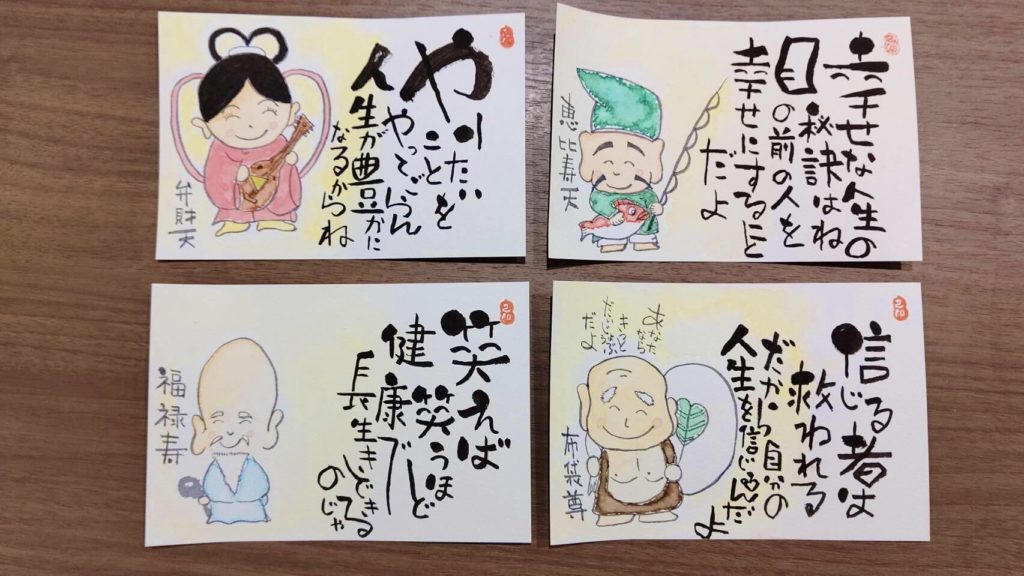 やりたい
ことを
やってごらん
人生が豊かに
なるからね
弁財天
幸せな人生の
秘訣はね
目の前の人を
幸せにすること
だよ
恵比寿天
笑えば
笑うほど
健康で
長生きできる
のじゃ
福禄寿
信じる者は
救われる
だから自分の
人生を信じるんだよ
あなた
なら
きっと
だいじょうぶ
だよ
布袋尊